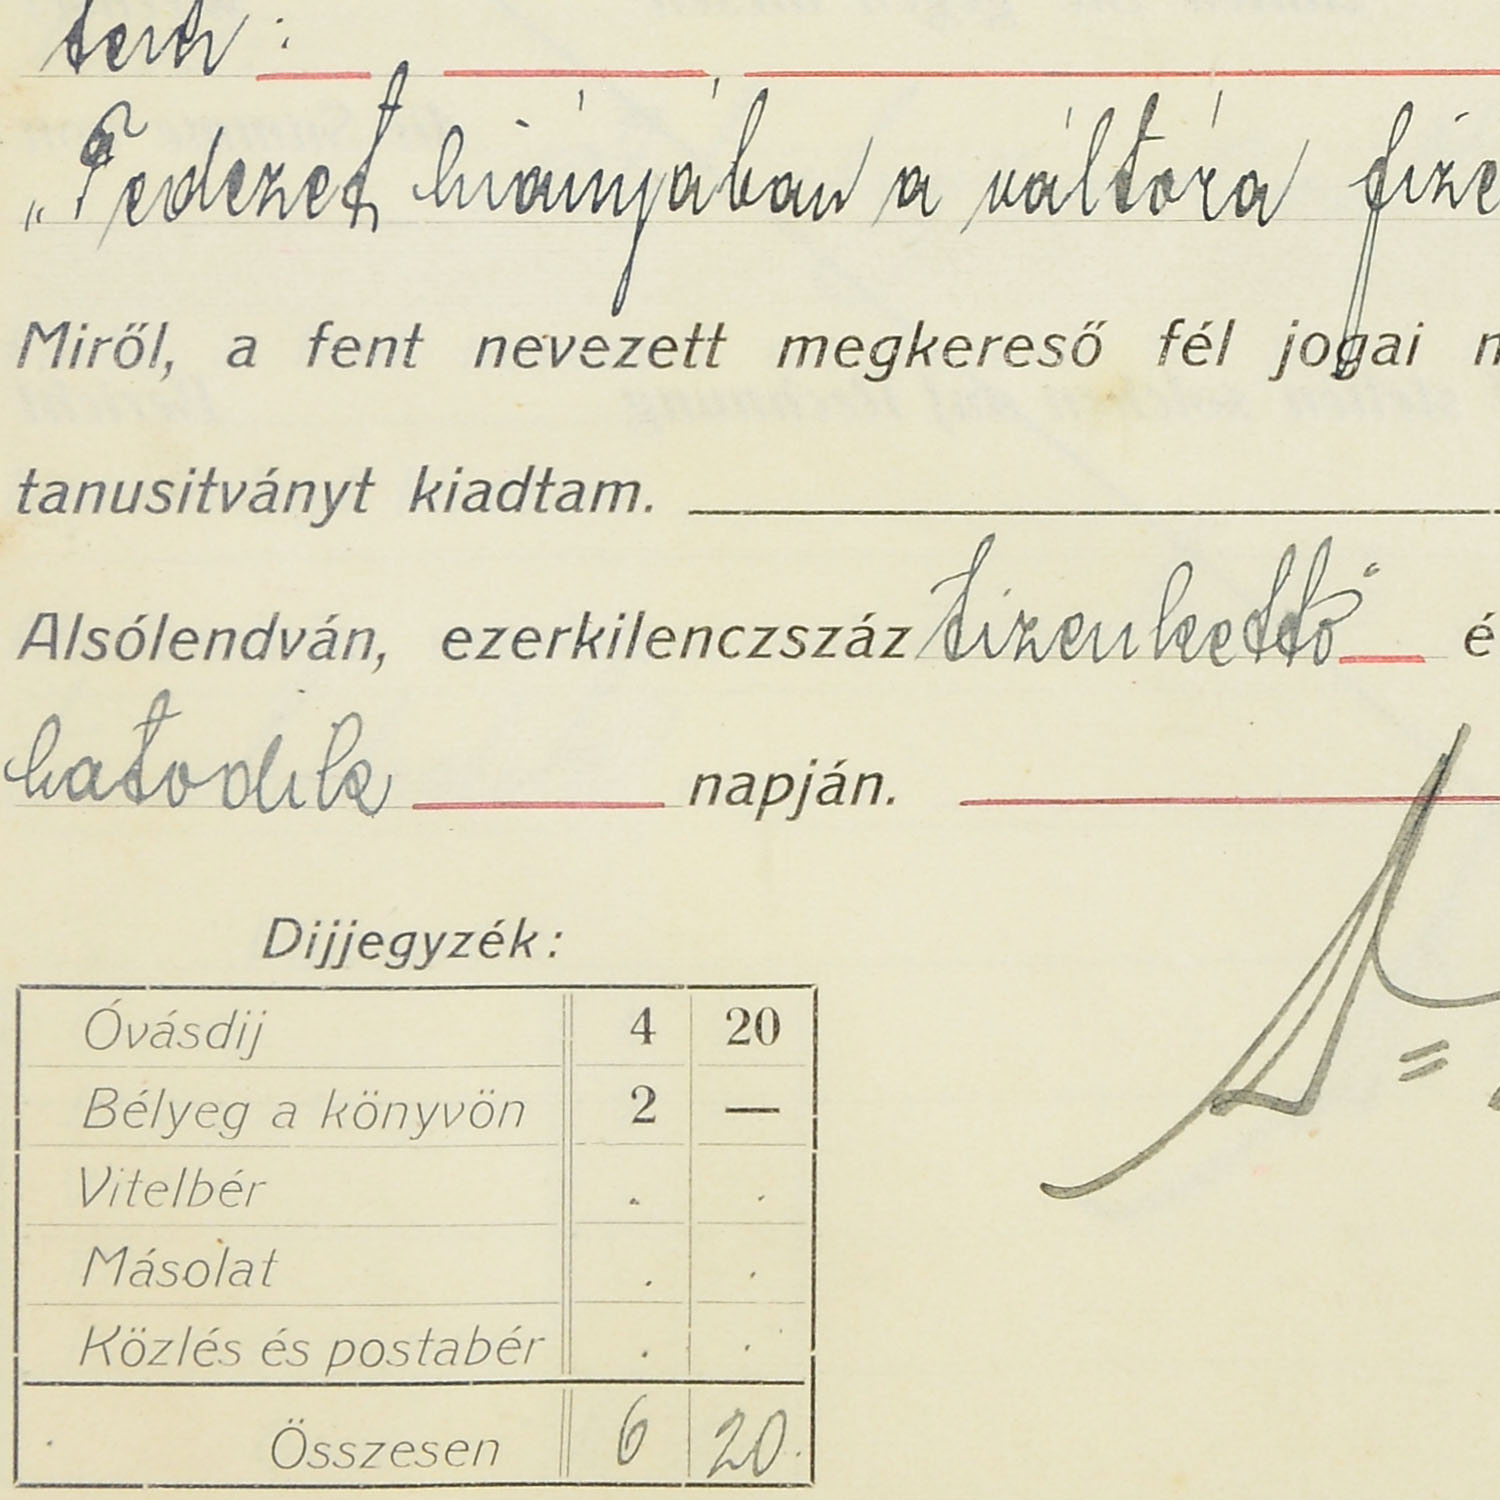 tem:
„Fedezet hiányában a váltóra fize
Miről, a fent nevezett megkereső fél jogai
tanusitványt kiadtam.
Alsólendván, ezerkilenczszáz tizenkettő é
hatodik napján.
Dijjegyzék:
Óvásdij 4 20
Bélyeg a könyvön 2 —
Vitelbér . .
Másolat . .
Közlés és postabér . .
Összesen 6 20.